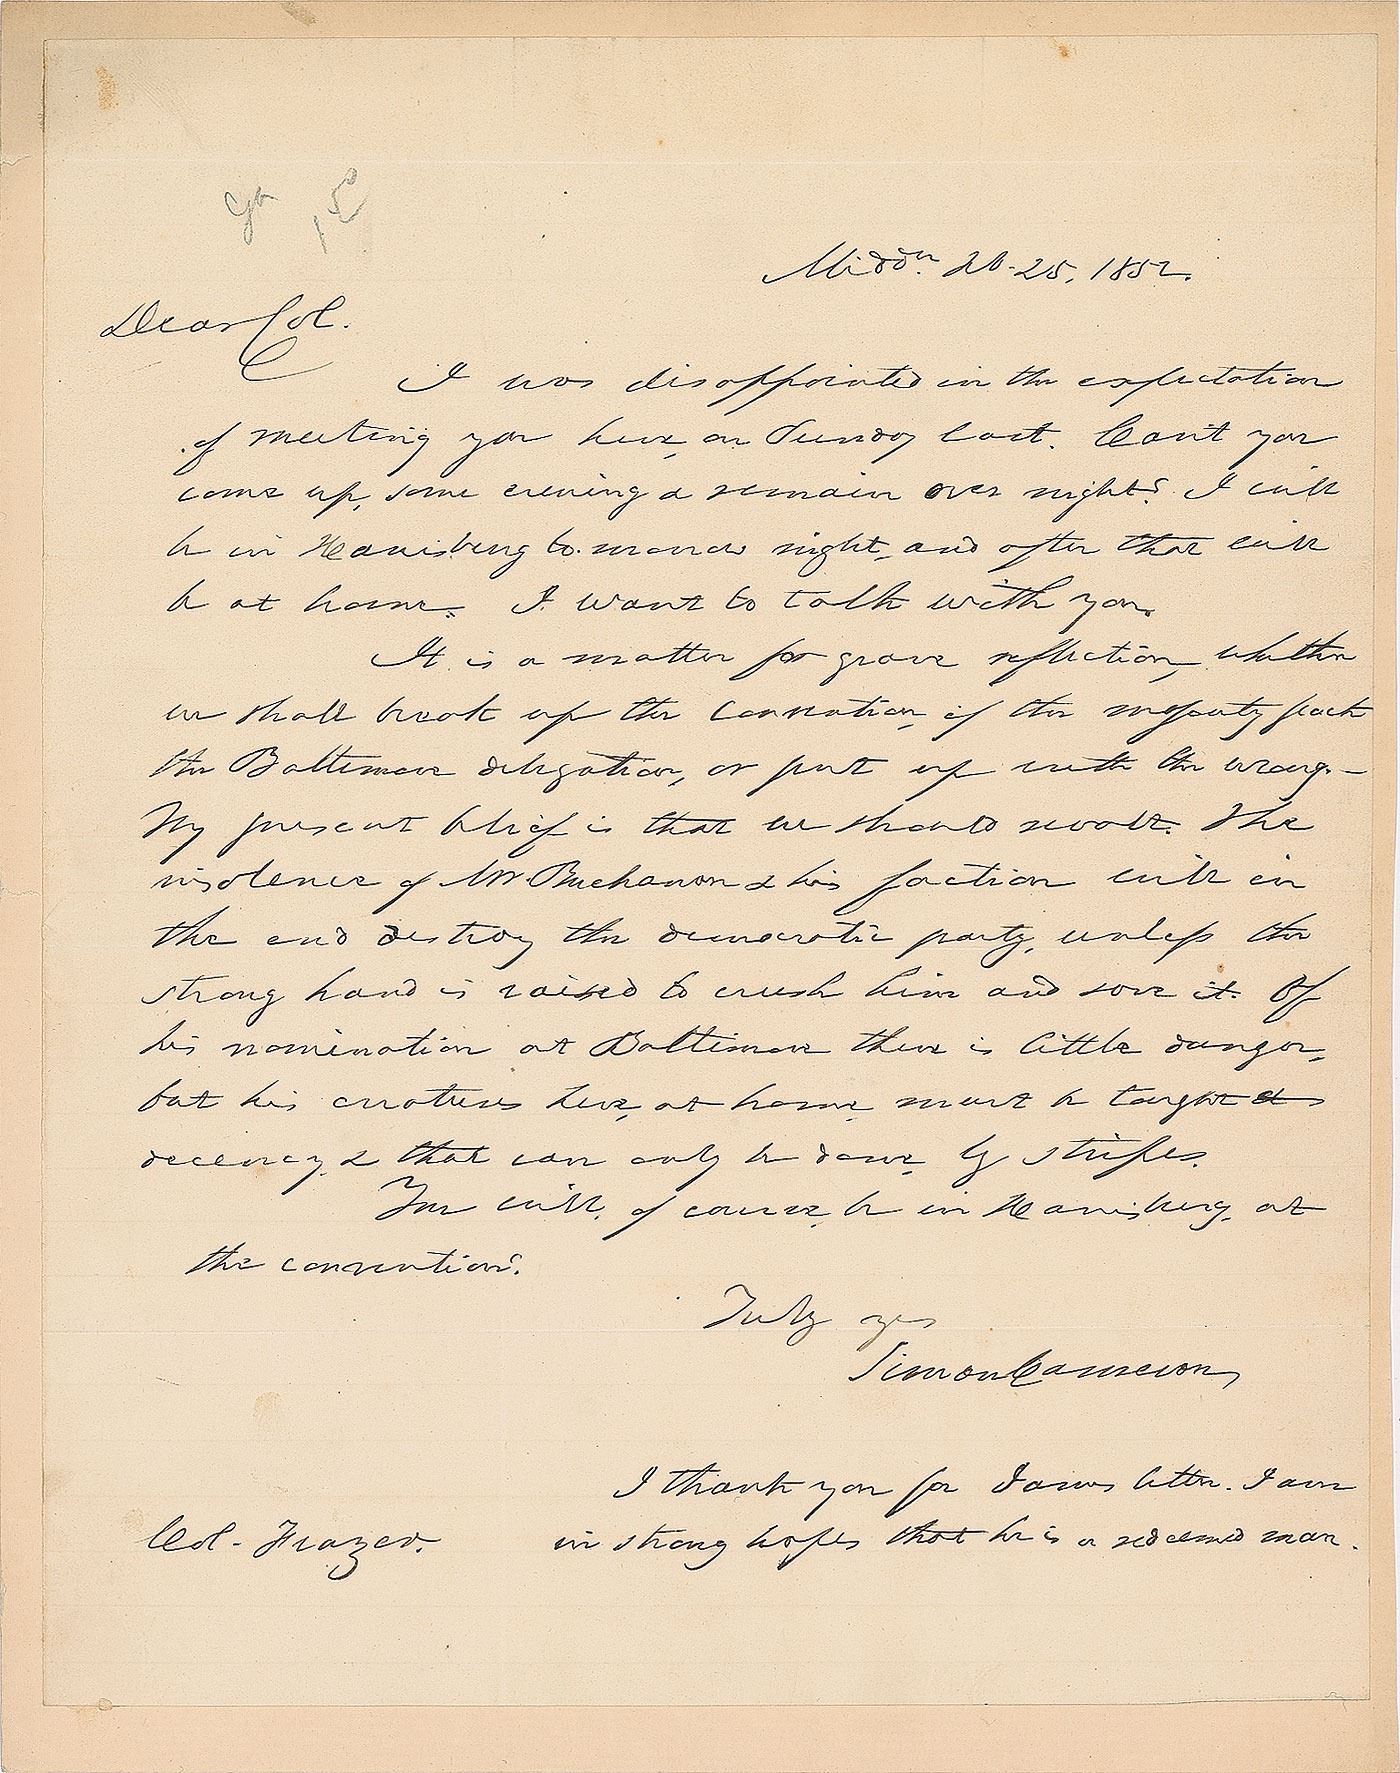 Middn. Feb. 25, 1852.
Dear Col.
I was disappointed in the expectation
of meeting you here, on Sunday last. Can't you
come up, some evening & remain over night? I will
be in Harrisburg to-morrow night, and after that will
be at home. I want to talk with you.
It is a matter for grave reflection, whether
we shall break up the convention, if the majority pack
the Baltimore delegation, or put up with the wrong.—
My present belief is that we should revolt. The
insolence of Mr Buchanan & his faction will in
the end destroy the democratic party, unless the
strong hand is raised to crush him and save it. Of
his nomination at Baltimore there is little danger,
but his creatures here, at home, must be taught
decency, & that can only be done, by stripes.
You will, of course, be in Harrisburg, at
the convention?
Truly yrs
Simon Cameron,
I thank you for letter. I am
Col. Frazer. in strong hopes that he is a redeemed man.